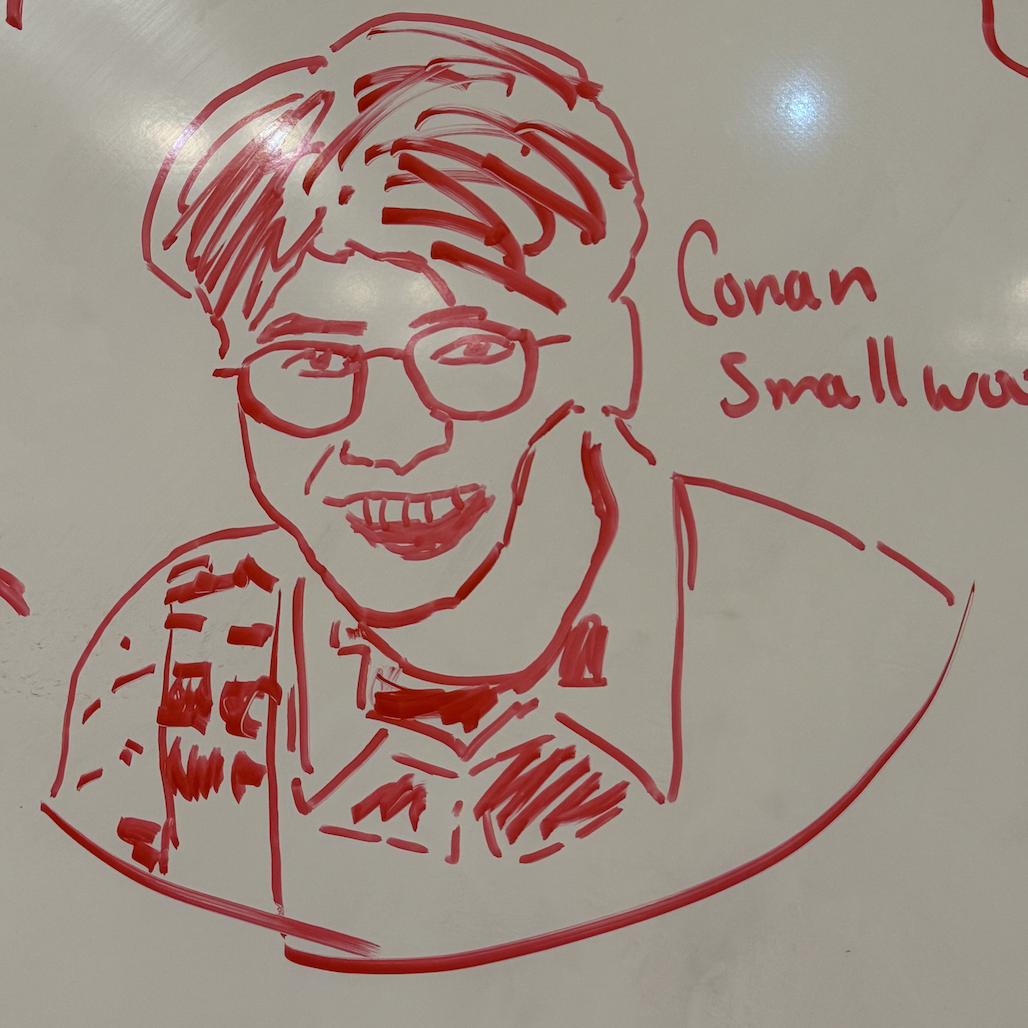 Conan
Small